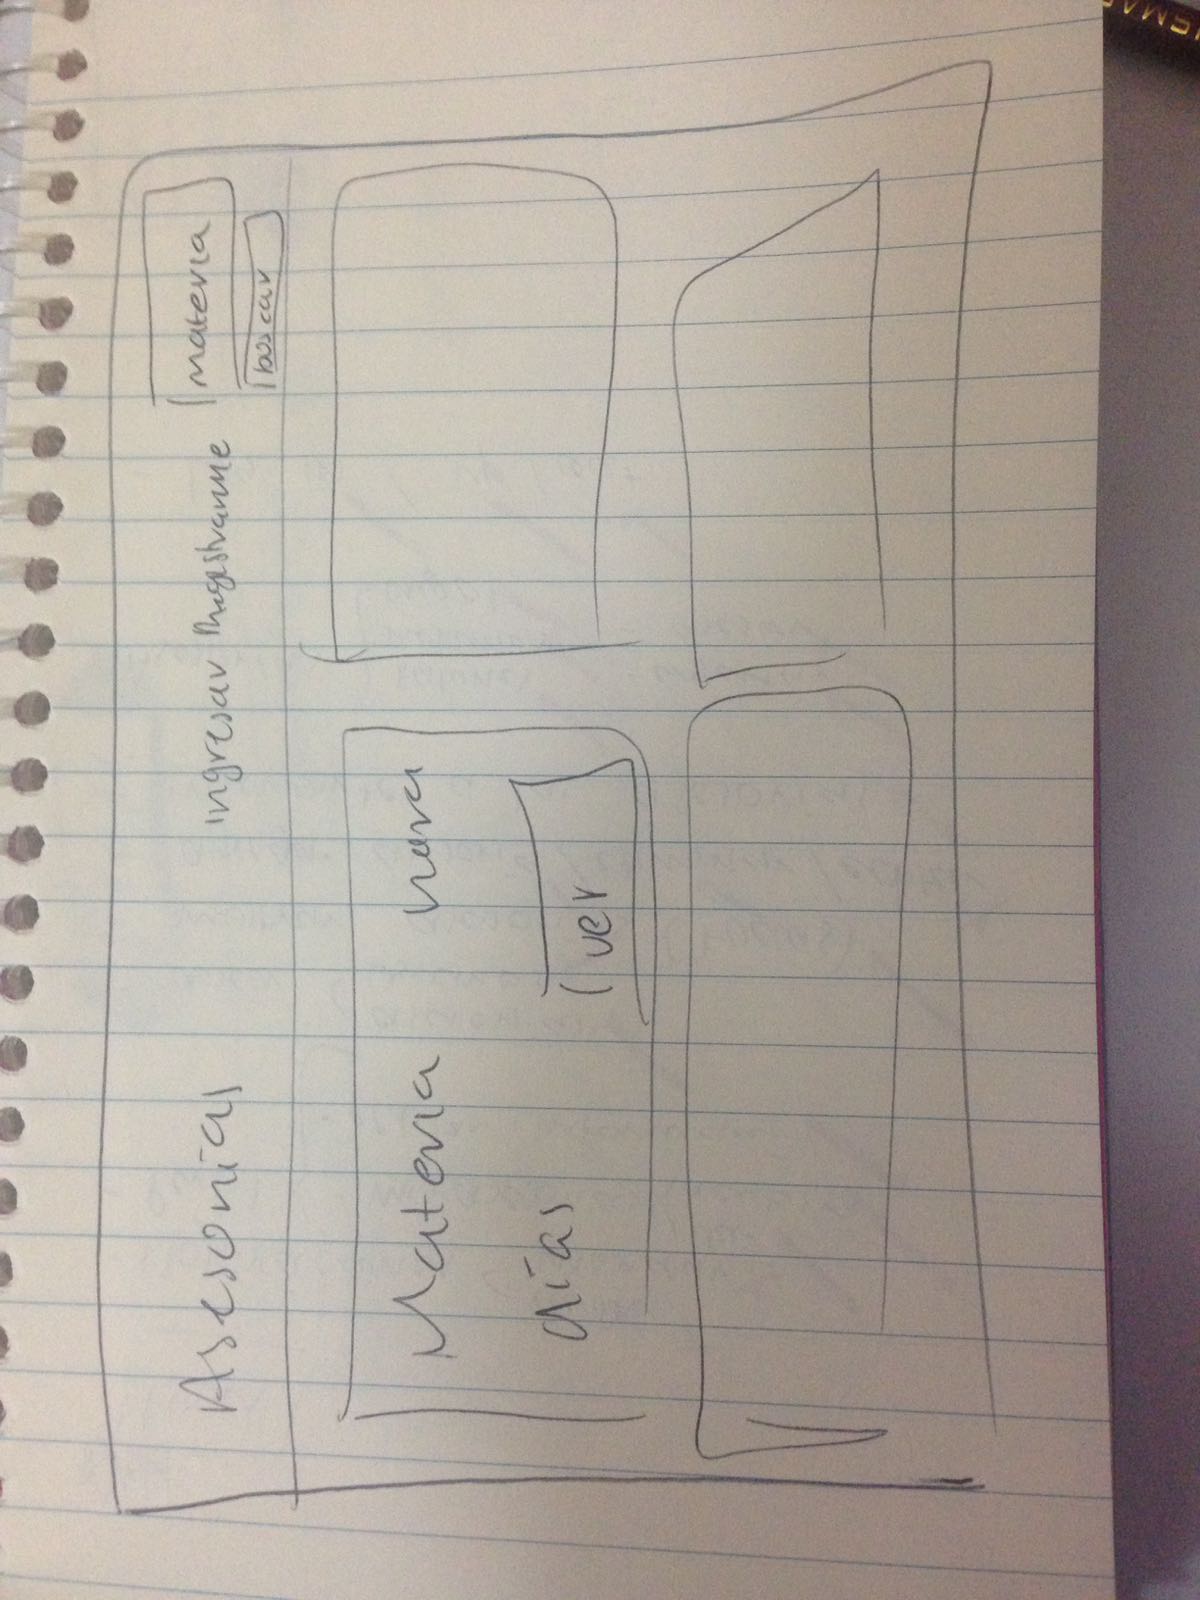 Asesorías ingresar Registrarme materia
buscar
Materia hora
días ver